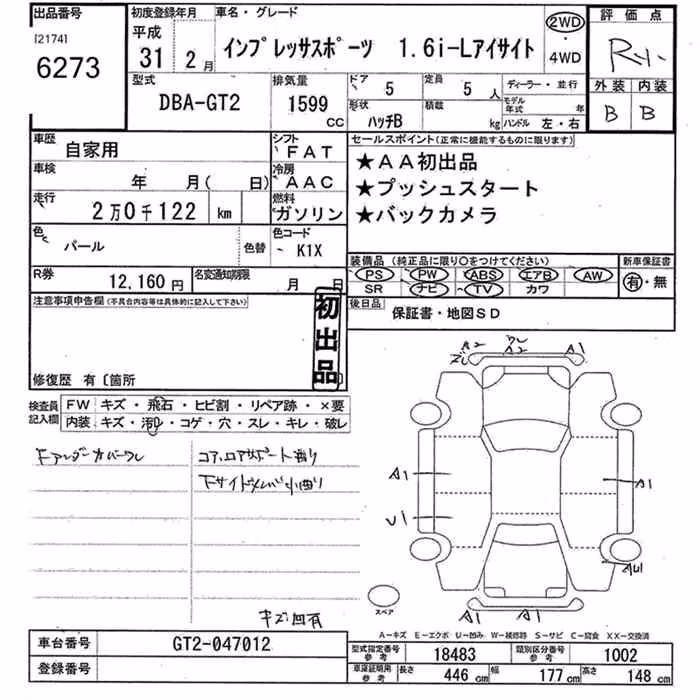 出品番号
[2174]
6273
初度登録年月
平成
31 2月
車名・グレード
インプレッサスポーツ 1.6i-Lアイサイト
2WD
・
4WD
評価点
外装 内装
B B
型式
DBA-GT2
排気量
1599
CC
ドア 5
定員 5 人
ディーラー・並行
形状 ハッチB
積載 kg
モデル年式 年
ハンドル 左・右
車歴 自家用
シフト FAT
車検 年 月( 日)
冷房 AAC
走行 2万0千122 km
燃料 ガソリン
色 パール
色替
色コード K1X
R券 12,160円
名変通知期限 月 日
セールスポイント(正常に機能するものに限ります)
★AA初出品
★プッシュスタート
★バックカメラ
装備品 (純正品に限り○をつけてください)
新車保証書
PS PW ABS エアB AW
SR ナビ TV カワ
有・無
後日品 保証書・地図SD
注意事項申告欄(不具合内容等は具体的に記入して下さい)
初出品
修復歴 有〔箇所
検査員記入欄
FW キズ・飛石・ヒビ割・リペア跡・×要
内装 キズ・汚れ・コゲ・穴・スレ・キレ・破レ
下アンダーカバーワレ
コア、ロアサポート曲り
下サイドメンバ小曲り
キズ凹有
A2
A2
A1
A1
A1
U1
A1
A1
スペア
A-キズ E-エクボ U-凹み W-補修跡 S-サビ C-腐食 XX-交換済
車台番号 GT2-047012
登録番号
型式指定番号 参考 18483
類別区分番号 参考 1002
車庫証明用 参考 長さ 446cm 幅 177cm 高さ 148cm